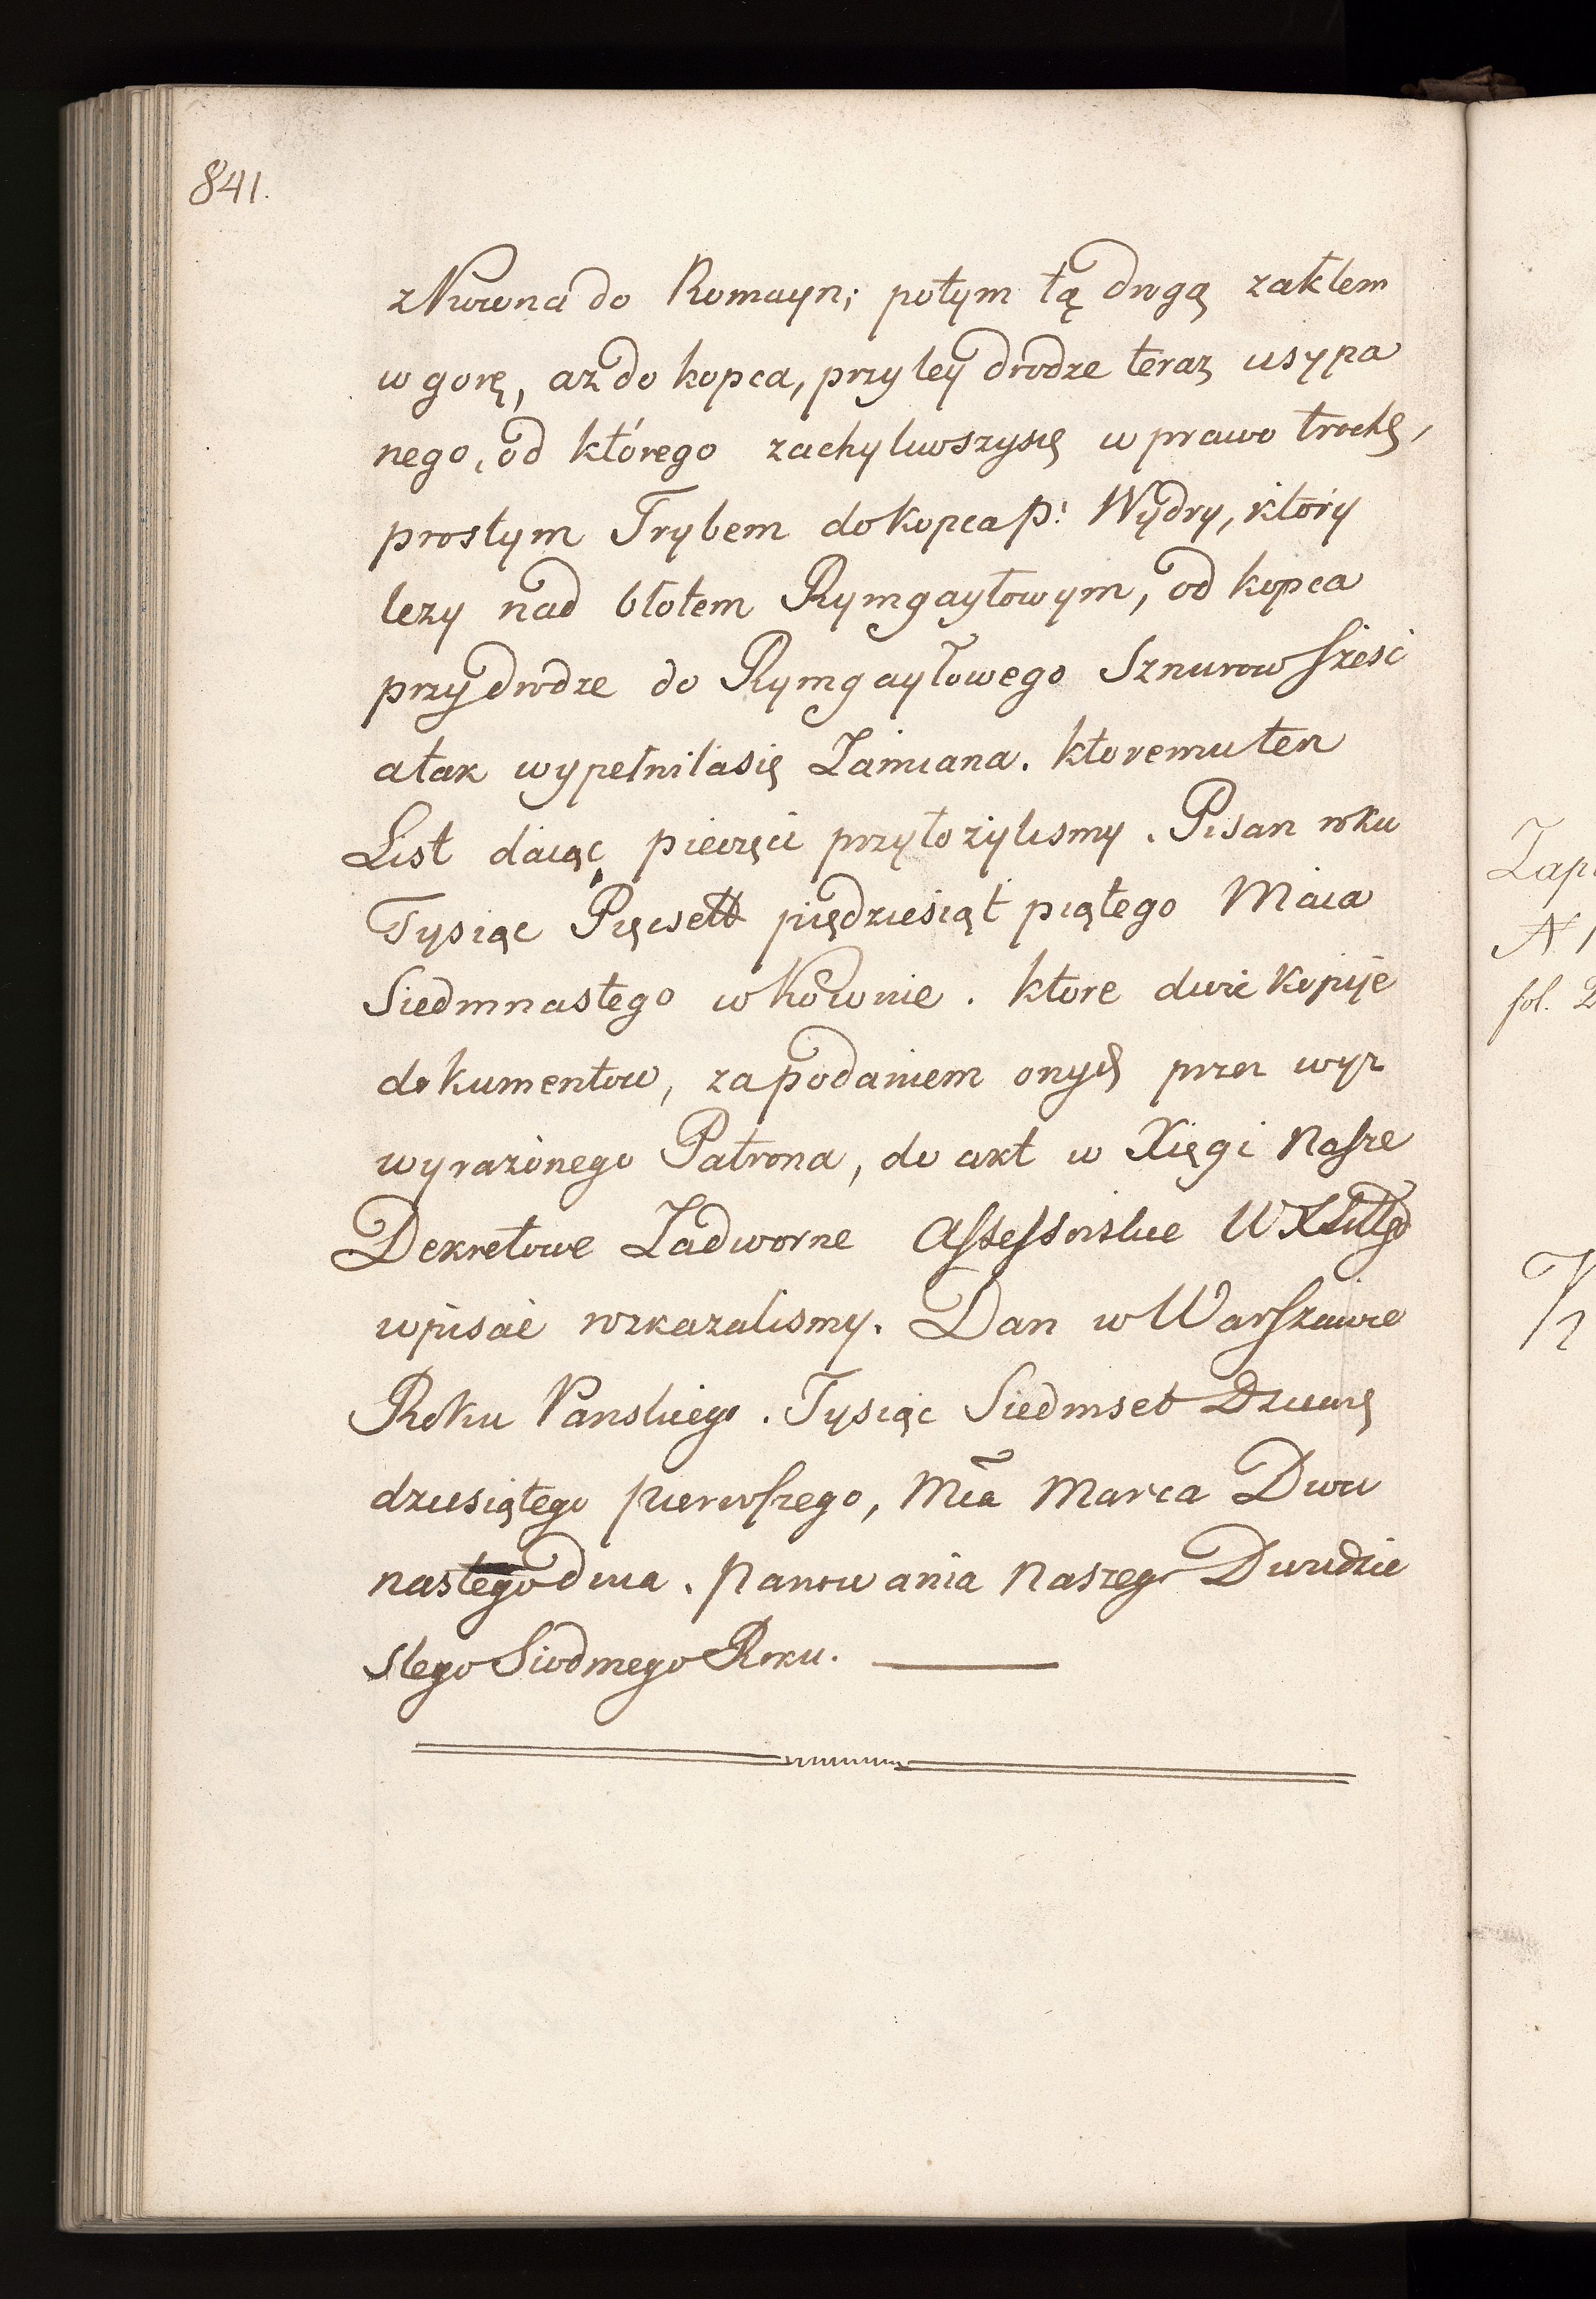 841.
z Kowna do Romayn; potym tą drogą zaktem
w gorę, aż do kopca, przy tey drodze teraz usypa
nego, od którego zachyliwszysię w prawo trochę,
prostym Trybem do kopca p: Wydry, ktory
lezy nad błotem Rymgayłowym, od kopca
przy drodze do Rymgayłowego Sznurow sześć
a tak wypełniłasię Zamiana. ktoremu ten
List daiąc pieczęci przyłożylismy. Pisan roku
Tysiąc Pięcsett piędziesiąt piątego Maia
Siedmnastego w Kownie. ktore dwie kopije
dokumentow, za podaniem onych przez wyż
wyrażonego Patrona, do akt w Xięgi Nasze
Dekretowe Zadworne Assessorskie W X Littgo
wpisać rozkazalismy. Dan w Warszawie
Roku Panskiego. Tysiąc Siedmset Dziewię
dziesiątego pierwszego, Mca Marca Dwu
nastego dnia. Panowania Naszego Dwudzie
stego Siodmego Roku.
Zap
A
fol. 2